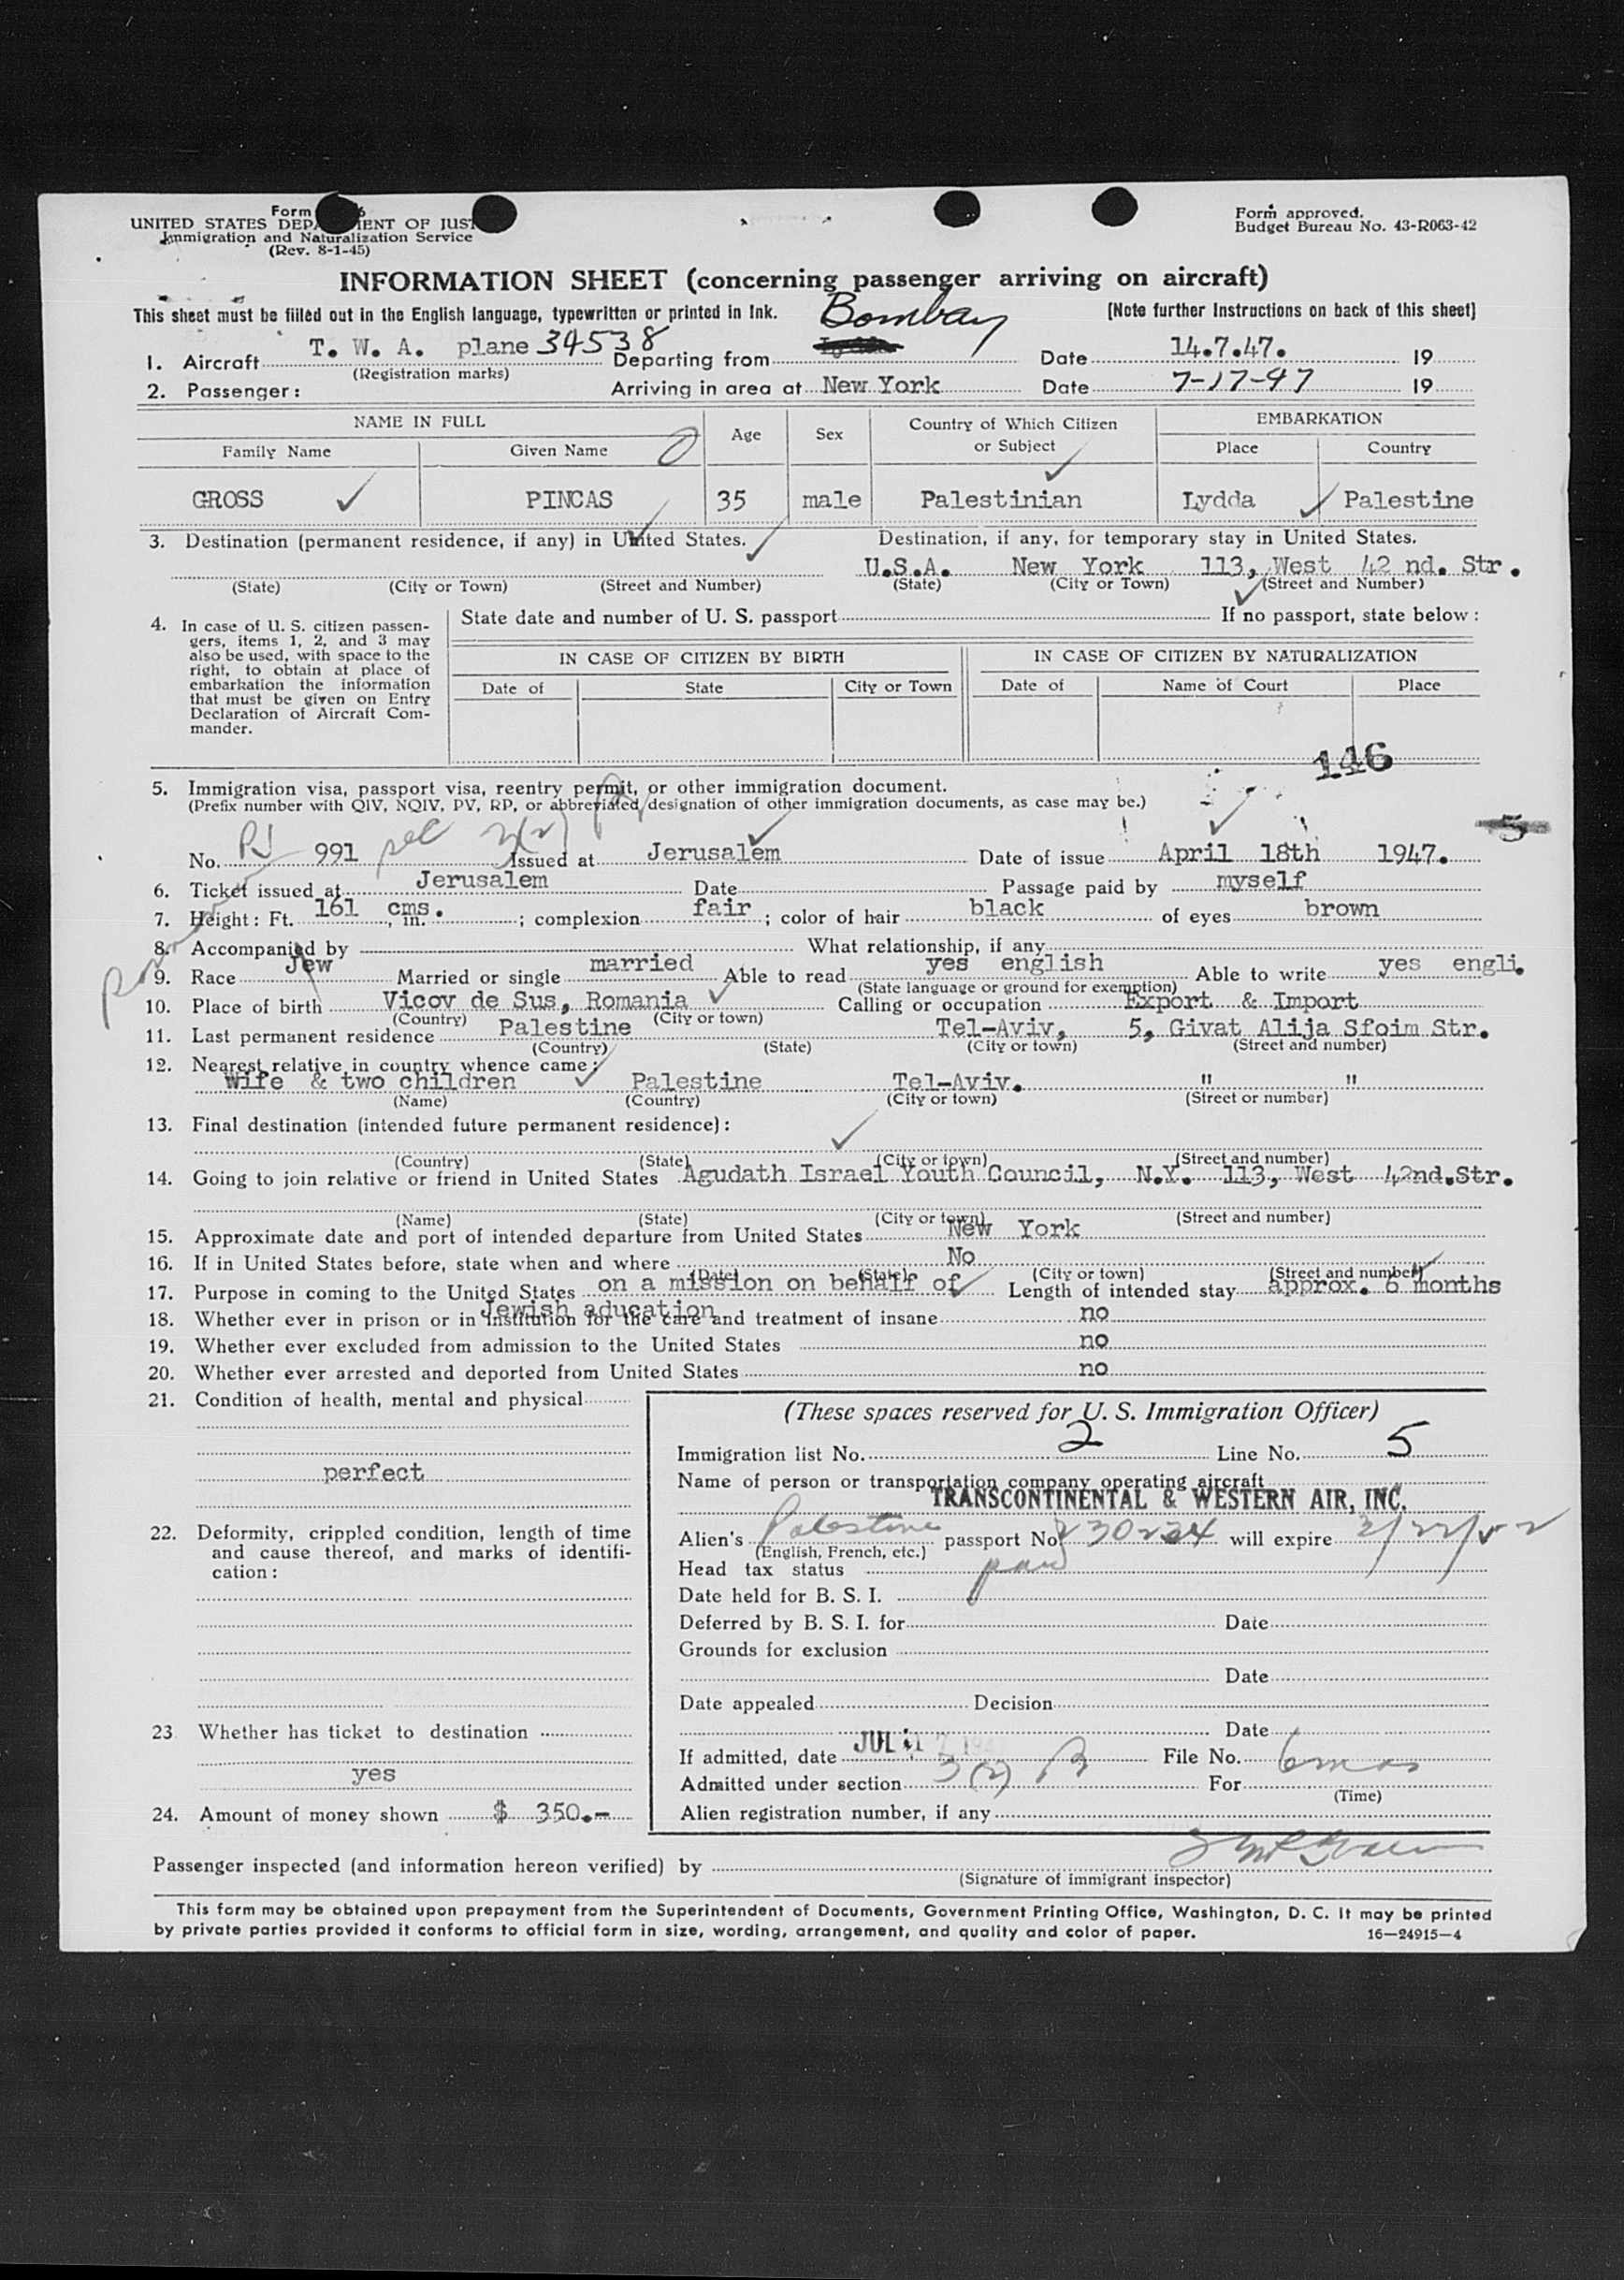 Form 6
UNITED STATES DEPARTMENT OF JUSTICE
Immigration and Naturalization Service
(Rev. 8-1-45)
Form approved.
Budget Bureau No. 43-R063-42
INFORMATION SHEET (concerning passenger arriving on aircraft)
This sheet must be filled out in the English language, typewritten or printed in ink. [Note further instructions on back of this sheet]
1. Aircraft T. W. A. plane 34538 Departing from Bombay Date 14.7.47. 19
(Registration marks)
2. Passenger: Arriving in area at New York Date 7-17-47 19
NAME IN FULL Age Sex Country of Which Citizen or Subject EMBARKATION
Family Name Given Name Place Country
GROSS PINCAS 35 male Palestinian Lydda Palestine
3. Destination (permanent residence, if any) in United States. Destination, if any, for temporary stay in United States.
U.S.A. New York 113, West 42 nd. Str.
(State) (City or Town) (Street and Number) (State) (City or Town) (Street and Number)
4. In case of U. S. citizen passengers, items 1, 2, and 3 may also be used, with space to the right, to obtain at place of embarkation the information that must be given on Entry Declaration of Aircraft Commander.
State date and number of U. S. passport If no passport, state below:
IN CASE OF CITIZEN BY BIRTH IN CASE OF CITIZEN BY NATURALIZATION
Date of State City or Town Date of Name of Court Place
146
5. Immigration visa, passport visa, reentry permit, or other immigration document.
(Prefix number with QIV, NQIV, PV, RP, or abbreviated designation of other immigration documents, as case may be.)
5
No. 991 3(2) Issued at Jerusalem Date of issue April 18th 1947.
6. Ticket issued at Jerusalem Date Passage paid by myself
7. Height: Ft. 161 cms., in. ; complexion fair ; color of hair black of eyes brown
8. Accompanied by What relationship, if any
9. Race Jew Married or single married Able to read yes english Able to write yes engli.
(State language or ground for exemption)
10. Place of birth Vicov de Sus, Romania Calling or occupation Export & Import
(Country) (City or town)
11. Last permanent residence Palestine Tel-Aviv, 5, Givat Alija Sfoim Str.
(Country) (State) (City or town) (Street and number)
12. Nearest relative in country whence came:
wife & two children Palestine Tel-Aviv. " "
(Name) (Country) (City or town) (Street or number)
13. Final destination (intended future permanent residence):
(Country) (State) (City or town) (Street and number)
14. Going to join relative or friend in United States Agudath Israel Youth Council, N.Y. 113, West 42nd.Str.
(Name) (State) (City or town) (Street and number)
15. Approximate date and port of intended departure from United States New York
16. If in United States before, state when and where No
(Date) (State) (City or town) (Street and number)
17. Purpose in coming to the United States on a mission on behalf of Length of intended stay approx. 6 months
Jewish aducation
18. Whether ever in prison or in institution for the care and treatment of insane no
19. Whether ever excluded from admission to the United States no
20. Whether ever arrested and deported from United States no
21. Condition of health, mental and physical
perfect
22. Deformity, crippled condition, length of time and cause thereof, and marks of identification:
23 Whether has ticket to destination
yes
24. Amount of money shown $ 350.-
(These spaces reserved for U. S. Immigration Officer)
Immigration list No. 2 Line No. 5
Name of person or transportation company operating aircraft
TRANSCONTINENTAL & WESTERN AIR, INC.
Alien's Palestine passport No. will expire
(English, French, etc.)
Head tax status
Date held for B. S. I.
Deferred by B. S. I. for Date
Grounds for exclusion
Date
Date appealed Decision
Date
If admitted, date JUL 17 File No.
Admitted under section 3(2) B For 6 mos
(Time)
Alien registration number, if any
Passenger inspected (and information hereon verified) by
(Signature of immigrant inspector)
This form may be obtained upon prepayment from the Superintendent of Documents, Government Printing Office, Washington, D. C. It may be printed
by private parties provided it conforms to official form in size, wording, arrangement, and quality and color of paper. 16—24915—4